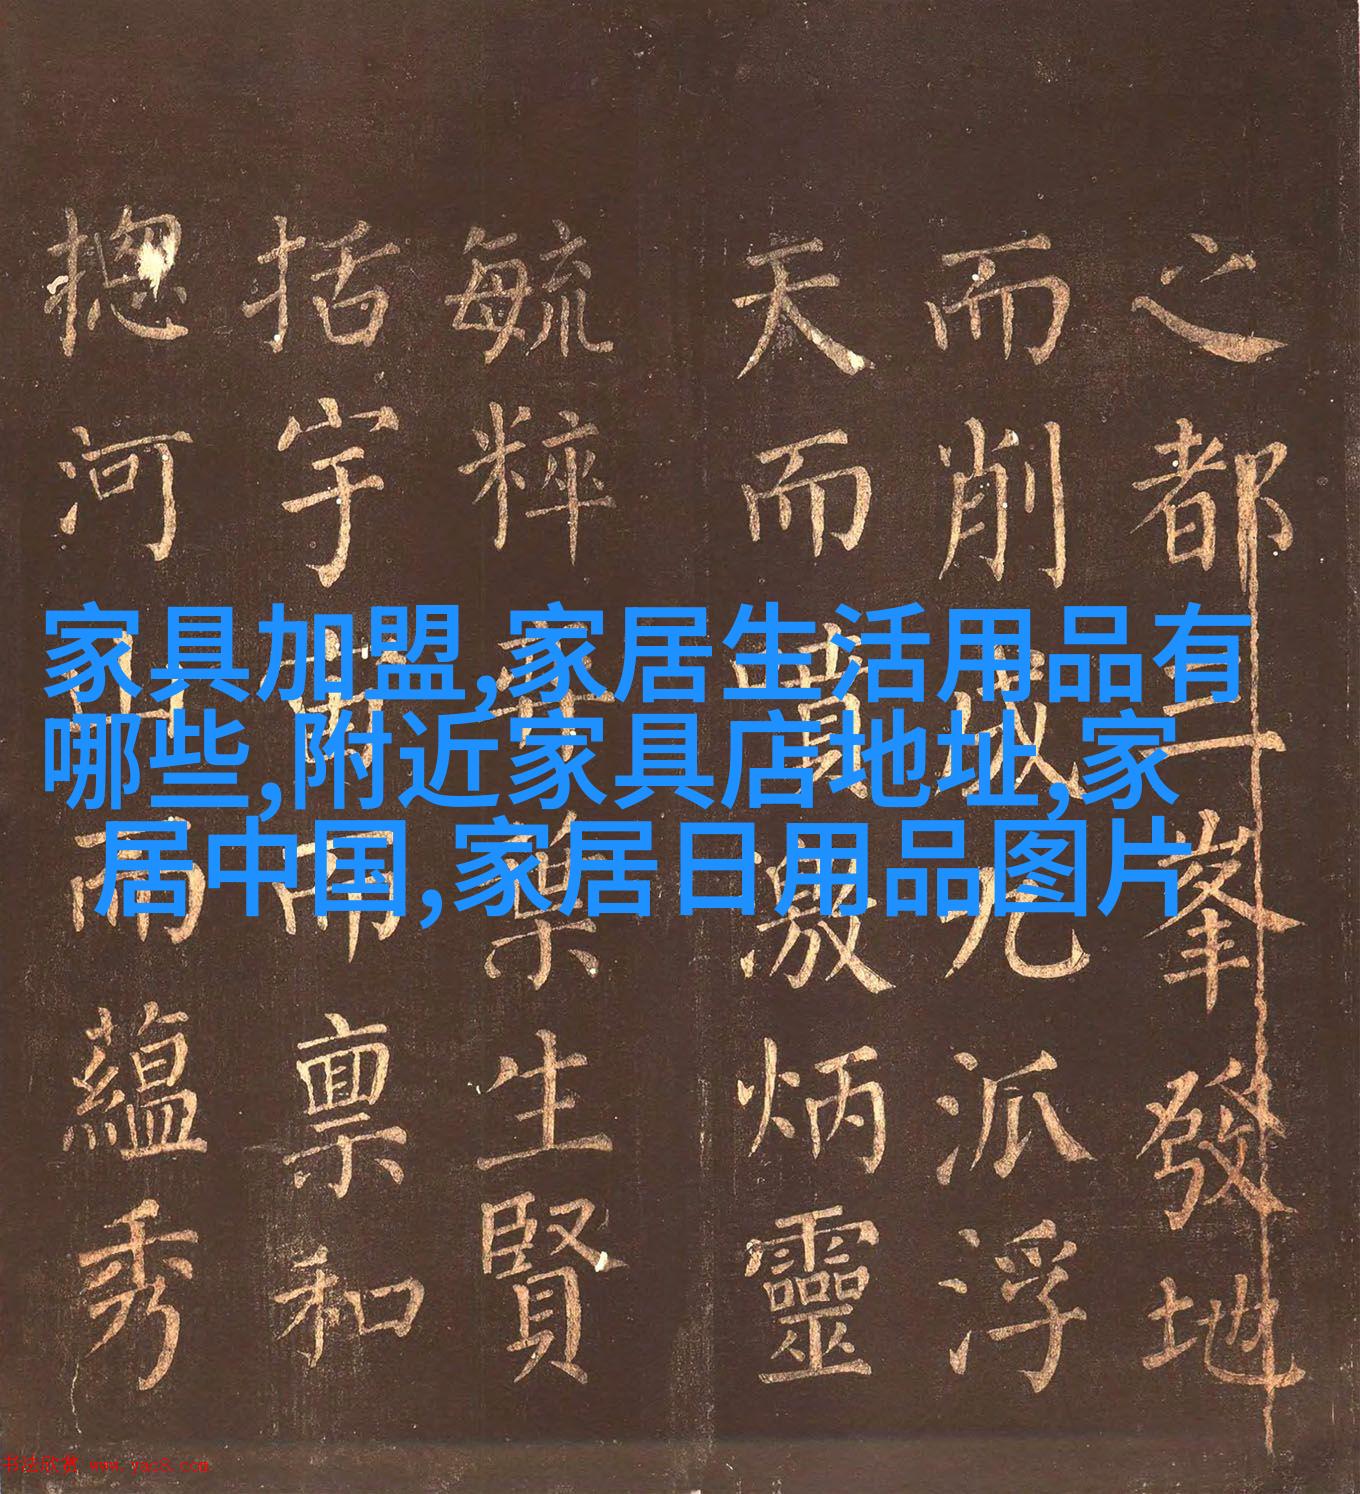 家具加盟,家居生活用品有
哪些,附近家具店地址,家
居中国,家居日用品图片
之都三峯發地
而削成九派浮
天而噴激炳靈
毓粹弈葉生賢
括宇宙而稟和
揔河山而蘊秀
书法欣赏 www.yac8.com